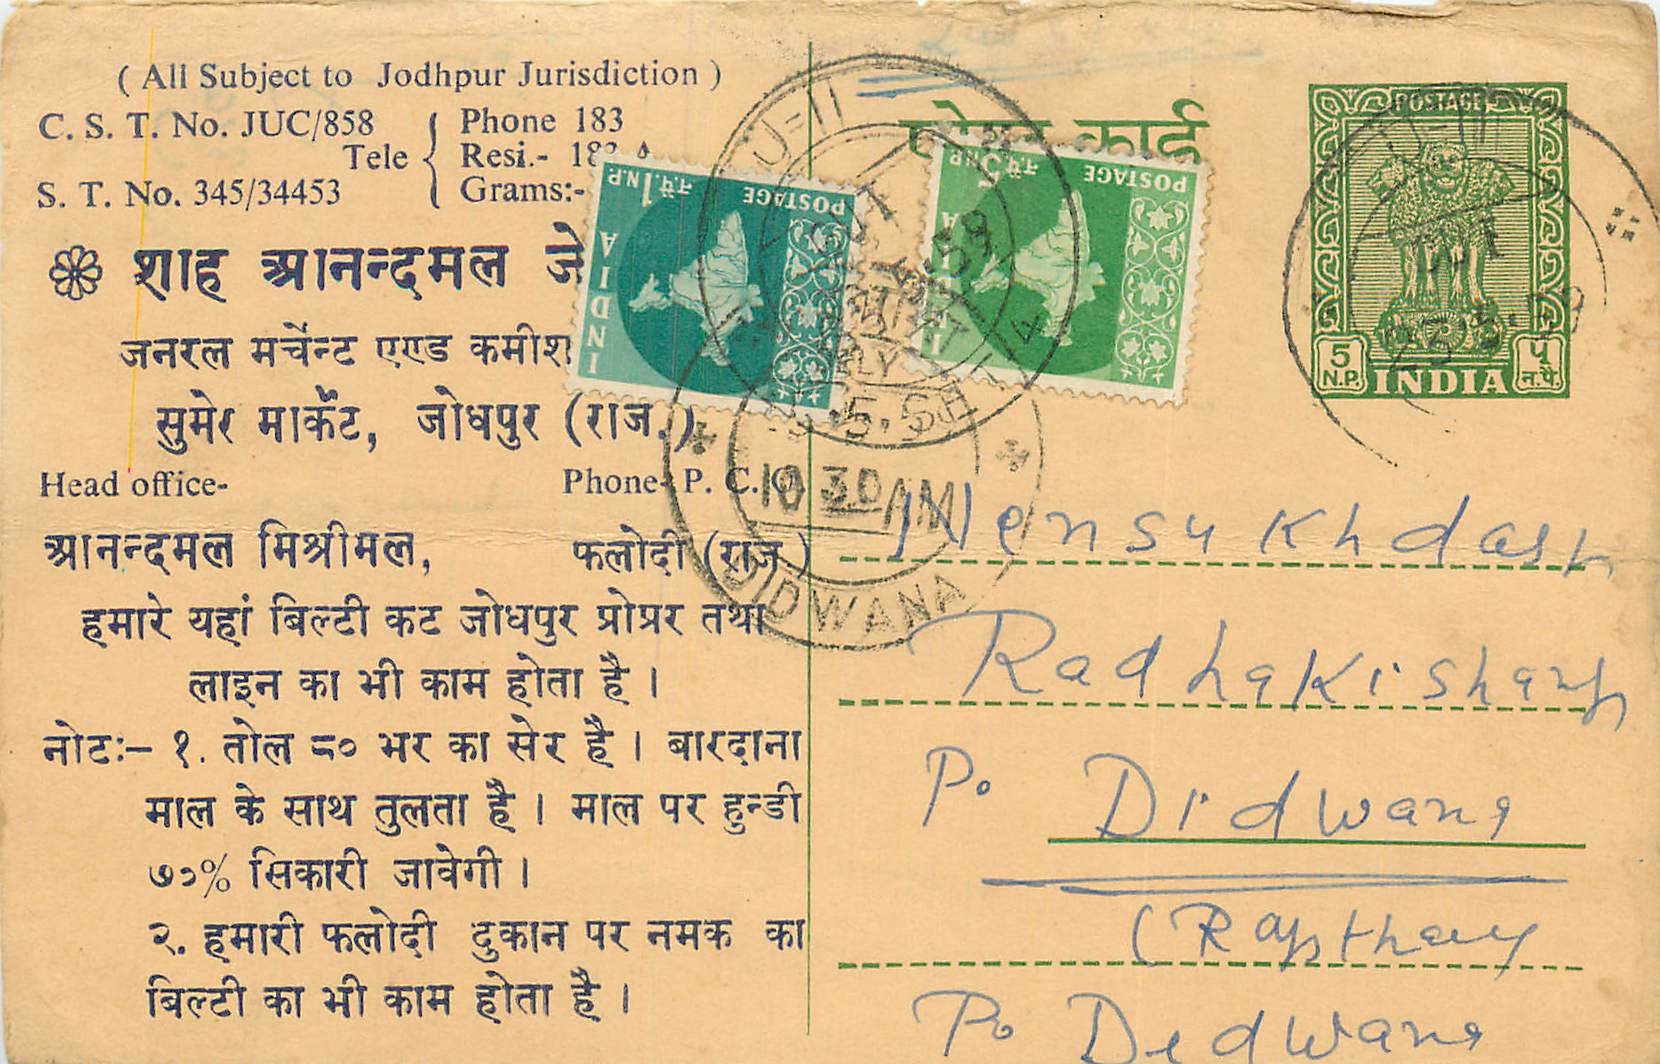 ( All Subject to Jodhpur Jurisdiction )
C. S. T. No. JUC/858
Tele
Phone 183
Resi.-
S. T. No. 345/34453
Grams:-
शाह आनन्दमल
जनरल मर्चेन्ट एण्ड
सुमेर मार्केट, जोधपुर (राज.)
Head office-
Phone- P. C. O.
आनन्दमल मिश्रीमल, फलोदी (राज.)
हमारे यहां बिल्टी कट जोधपुर प्रोप्रर तथा
लाइन का भी काम होता है ।
नोटः- १. तोल ८० भर का सेर है । बारदाना
माल के साथ तुलता है । माल पर हुन्डी
७०% सिकारी जावेगी ।
२. हमारी फलोदी दुकान पर नमक का
बिल्टी का भी काम होता है ।
1 N.P. १ न.पै.
POSTAGE
INDIA
5 N.P. ५ न.पै.
POSTAGE
10 30 AM
DIDWANA
कार्ड
POSTAGE
5 N.P.
INDIA
५ न.पै.
Radhakishan
Po Didwana
Po Didwana